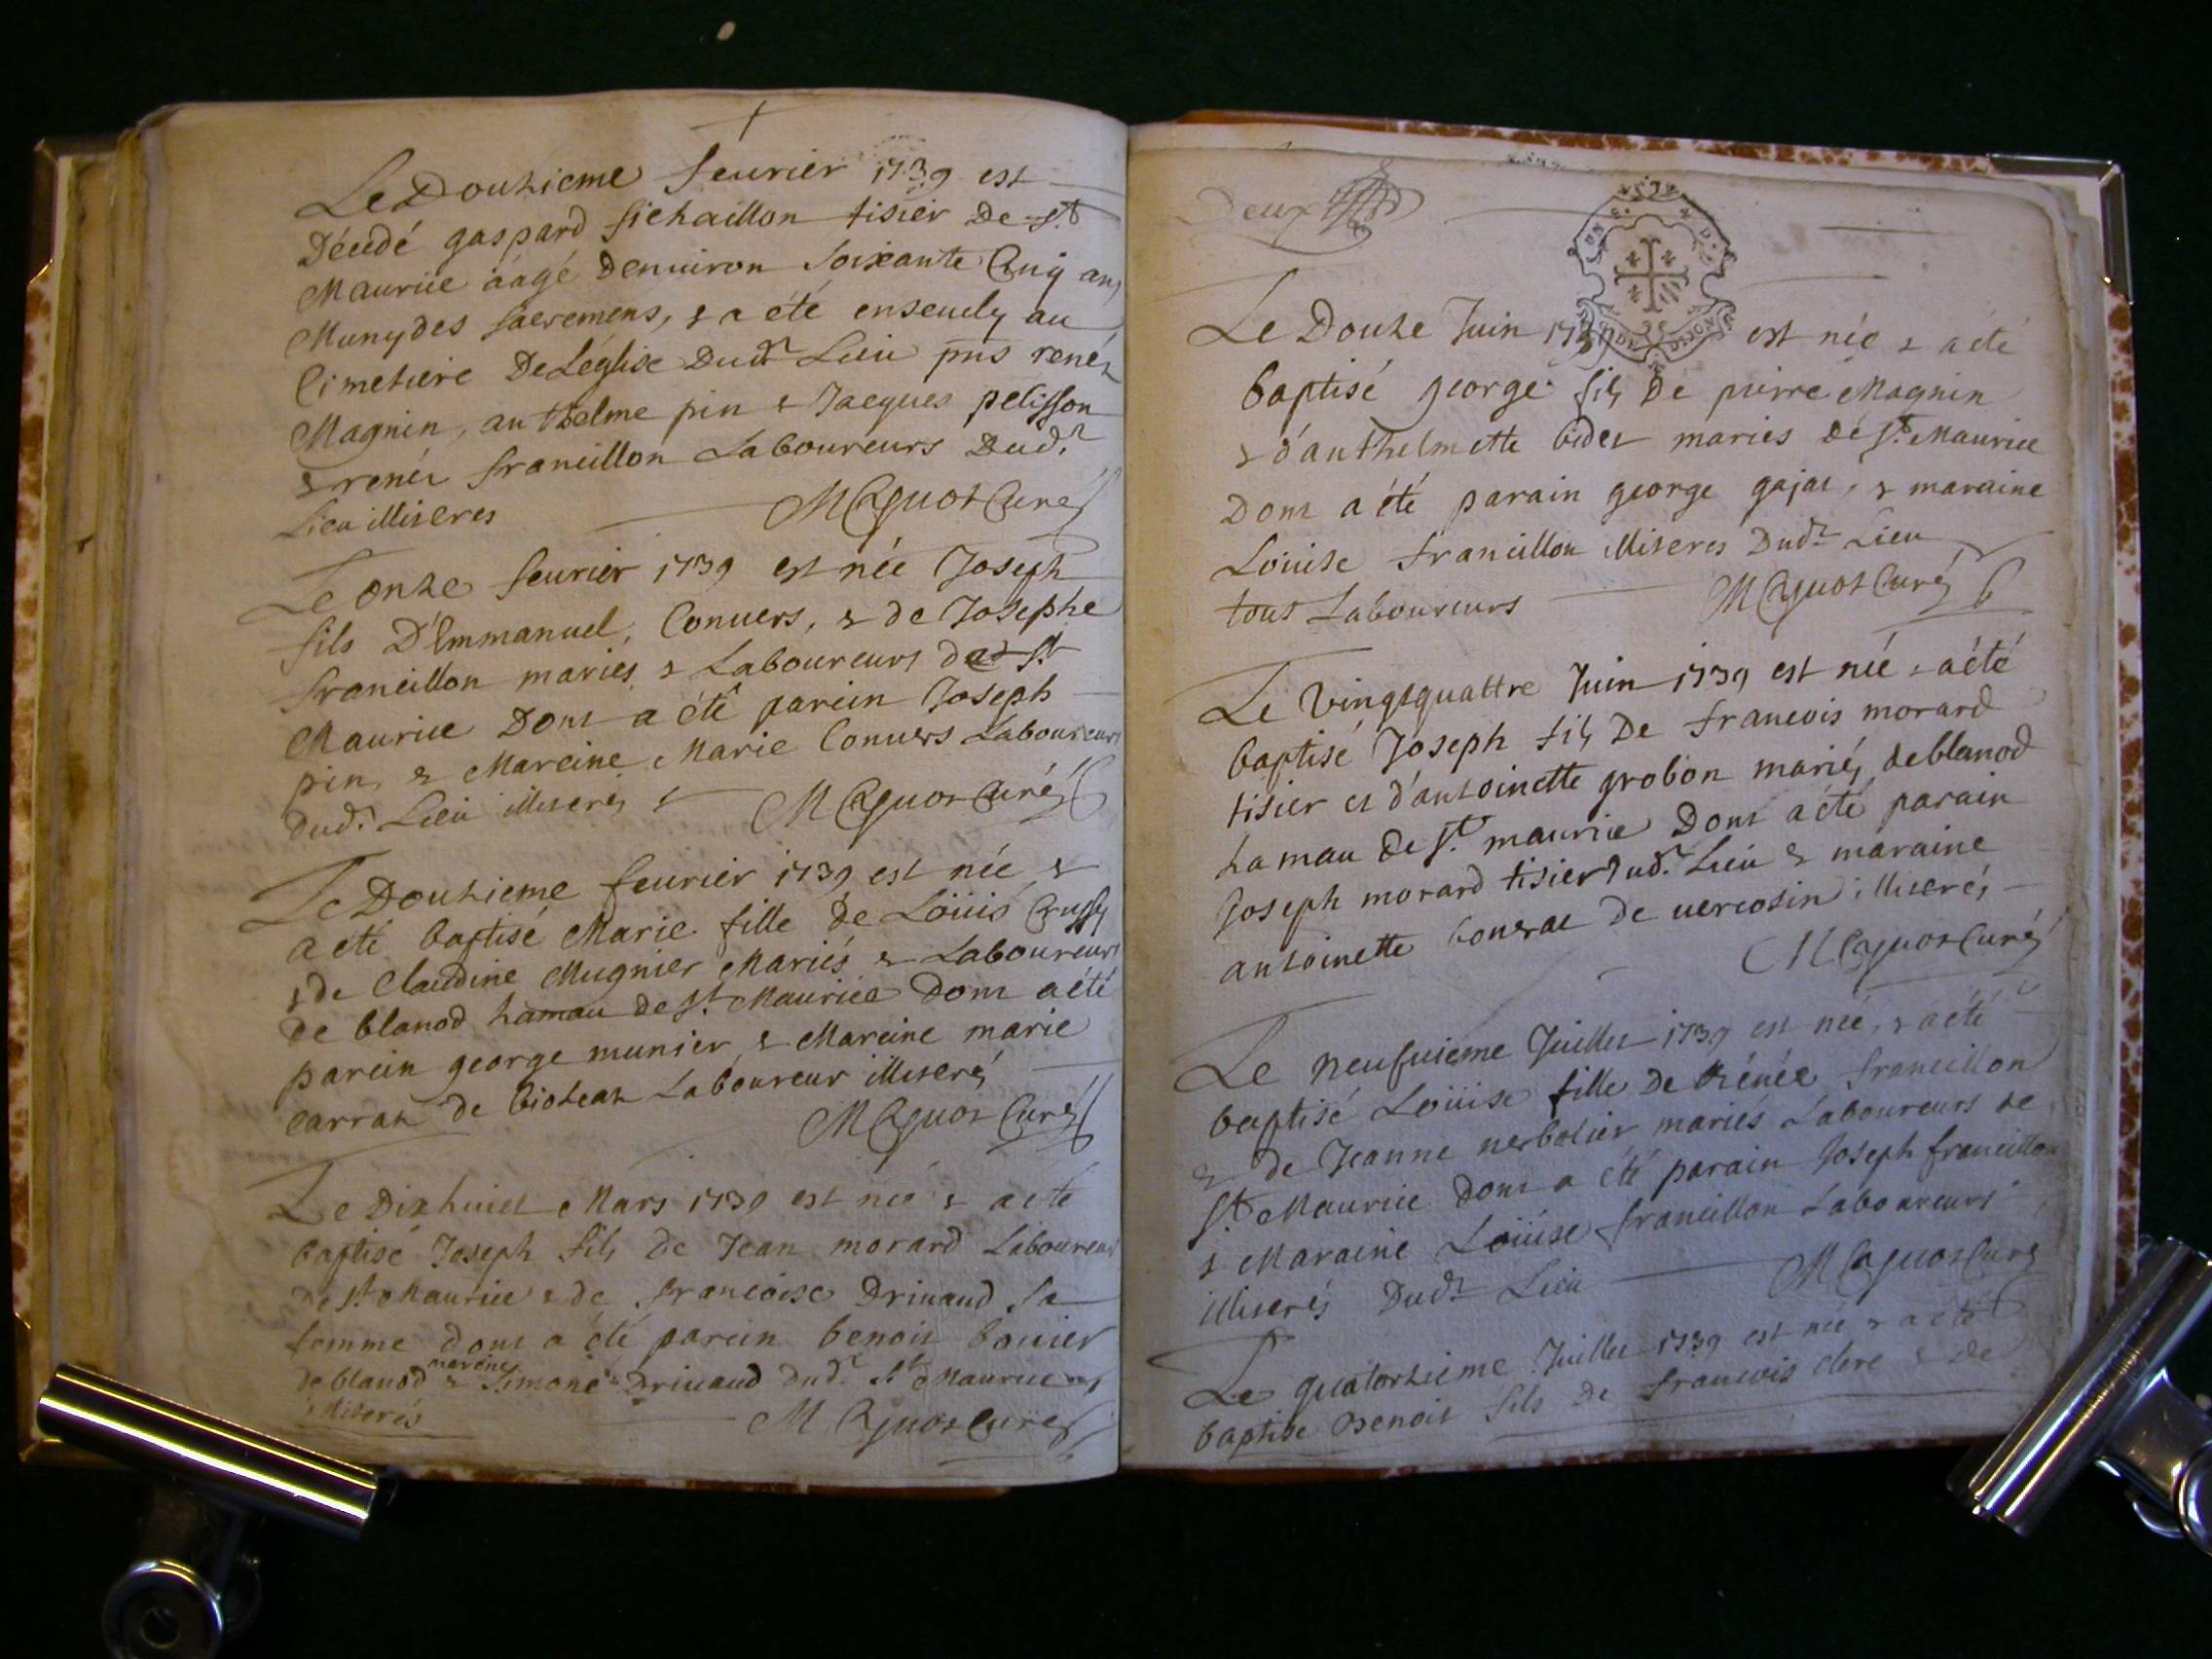 Le Douzieme feurier 1739 est
Décédé gaspard fichaillon tisier De St
Maurice áagé Denuiron Soixante Cinq ans
Muny des sacremens, & a été enseuely au
Cimetiere De Léglise Dudt Lieu pns renéz
Magnin, anthelme pin & Jacques pelisson
& renéz francillon Laboureurs Dudt
Lieu illiteres
M Curé
Le onze feurier 1739 est née Joseph
fils D'Emmanuel, Conuers, & de Josephe
francillon mariés & Laboureurs de St
Maurice Dont a été parein Joseph
pin, & Mareine Marie Conuers Laboureurs
dudt Lieu illiterés
M Curé
Le Douzieme feurier 1739 est née &
a eté baptisé Marie fille de Loüis
& de Claudine Mugnier Mariés & Laboureurs
de blanod hamau de St Maurice Dont a été
parein george munier & Mareine marie
carraz de Laboureur illiterés
M Curé
Le Dixhuiet Mars 1739 est né & a eté
baptisé Joseph fils De Jean morard Laboureur
De St Maurice & de francoise Driuaud sa
femme dont a été parein benoit bouier
de blanod & mareine Simone Driuaud dudt St Maurice
illiterés
M Curé
Deux
DE DIJON
Le Douze Juin 1739 est née & a été
baptisé george fils De pierre Magnin
& d'anthelmette bidet mariés de St Maurice
Dont a été parain george gajat, & maraine
Louise francillon illiteres Dudt Lieu
tous Laboureurs
M Curé
Le vingtquattre Juin 1739 est né & a été
baptisé Joseph fils De francois morard
tisier et d'antoinette grobon mariés de blanod
hamau de St maurice Dont a été parain
Joseph morard tisier Dudt Lieu & maraine
antoinette de uercosin illiterés
M Curé
Le neufuieme Juillet 1739 est née, & a été
baptisé Loüise fille De Rénée francillon
& de Jeanne nerbolier mariés Laboureurs de
St Maurice Dont a été parain Joseph francillon
& Maraine Loüise francillon Laboureurs
illiterés Dudt Lieu
M Curé
Le quatorzieme Juillet 1739 est né & a été
baptisé Benoit fils de francois clerc & de